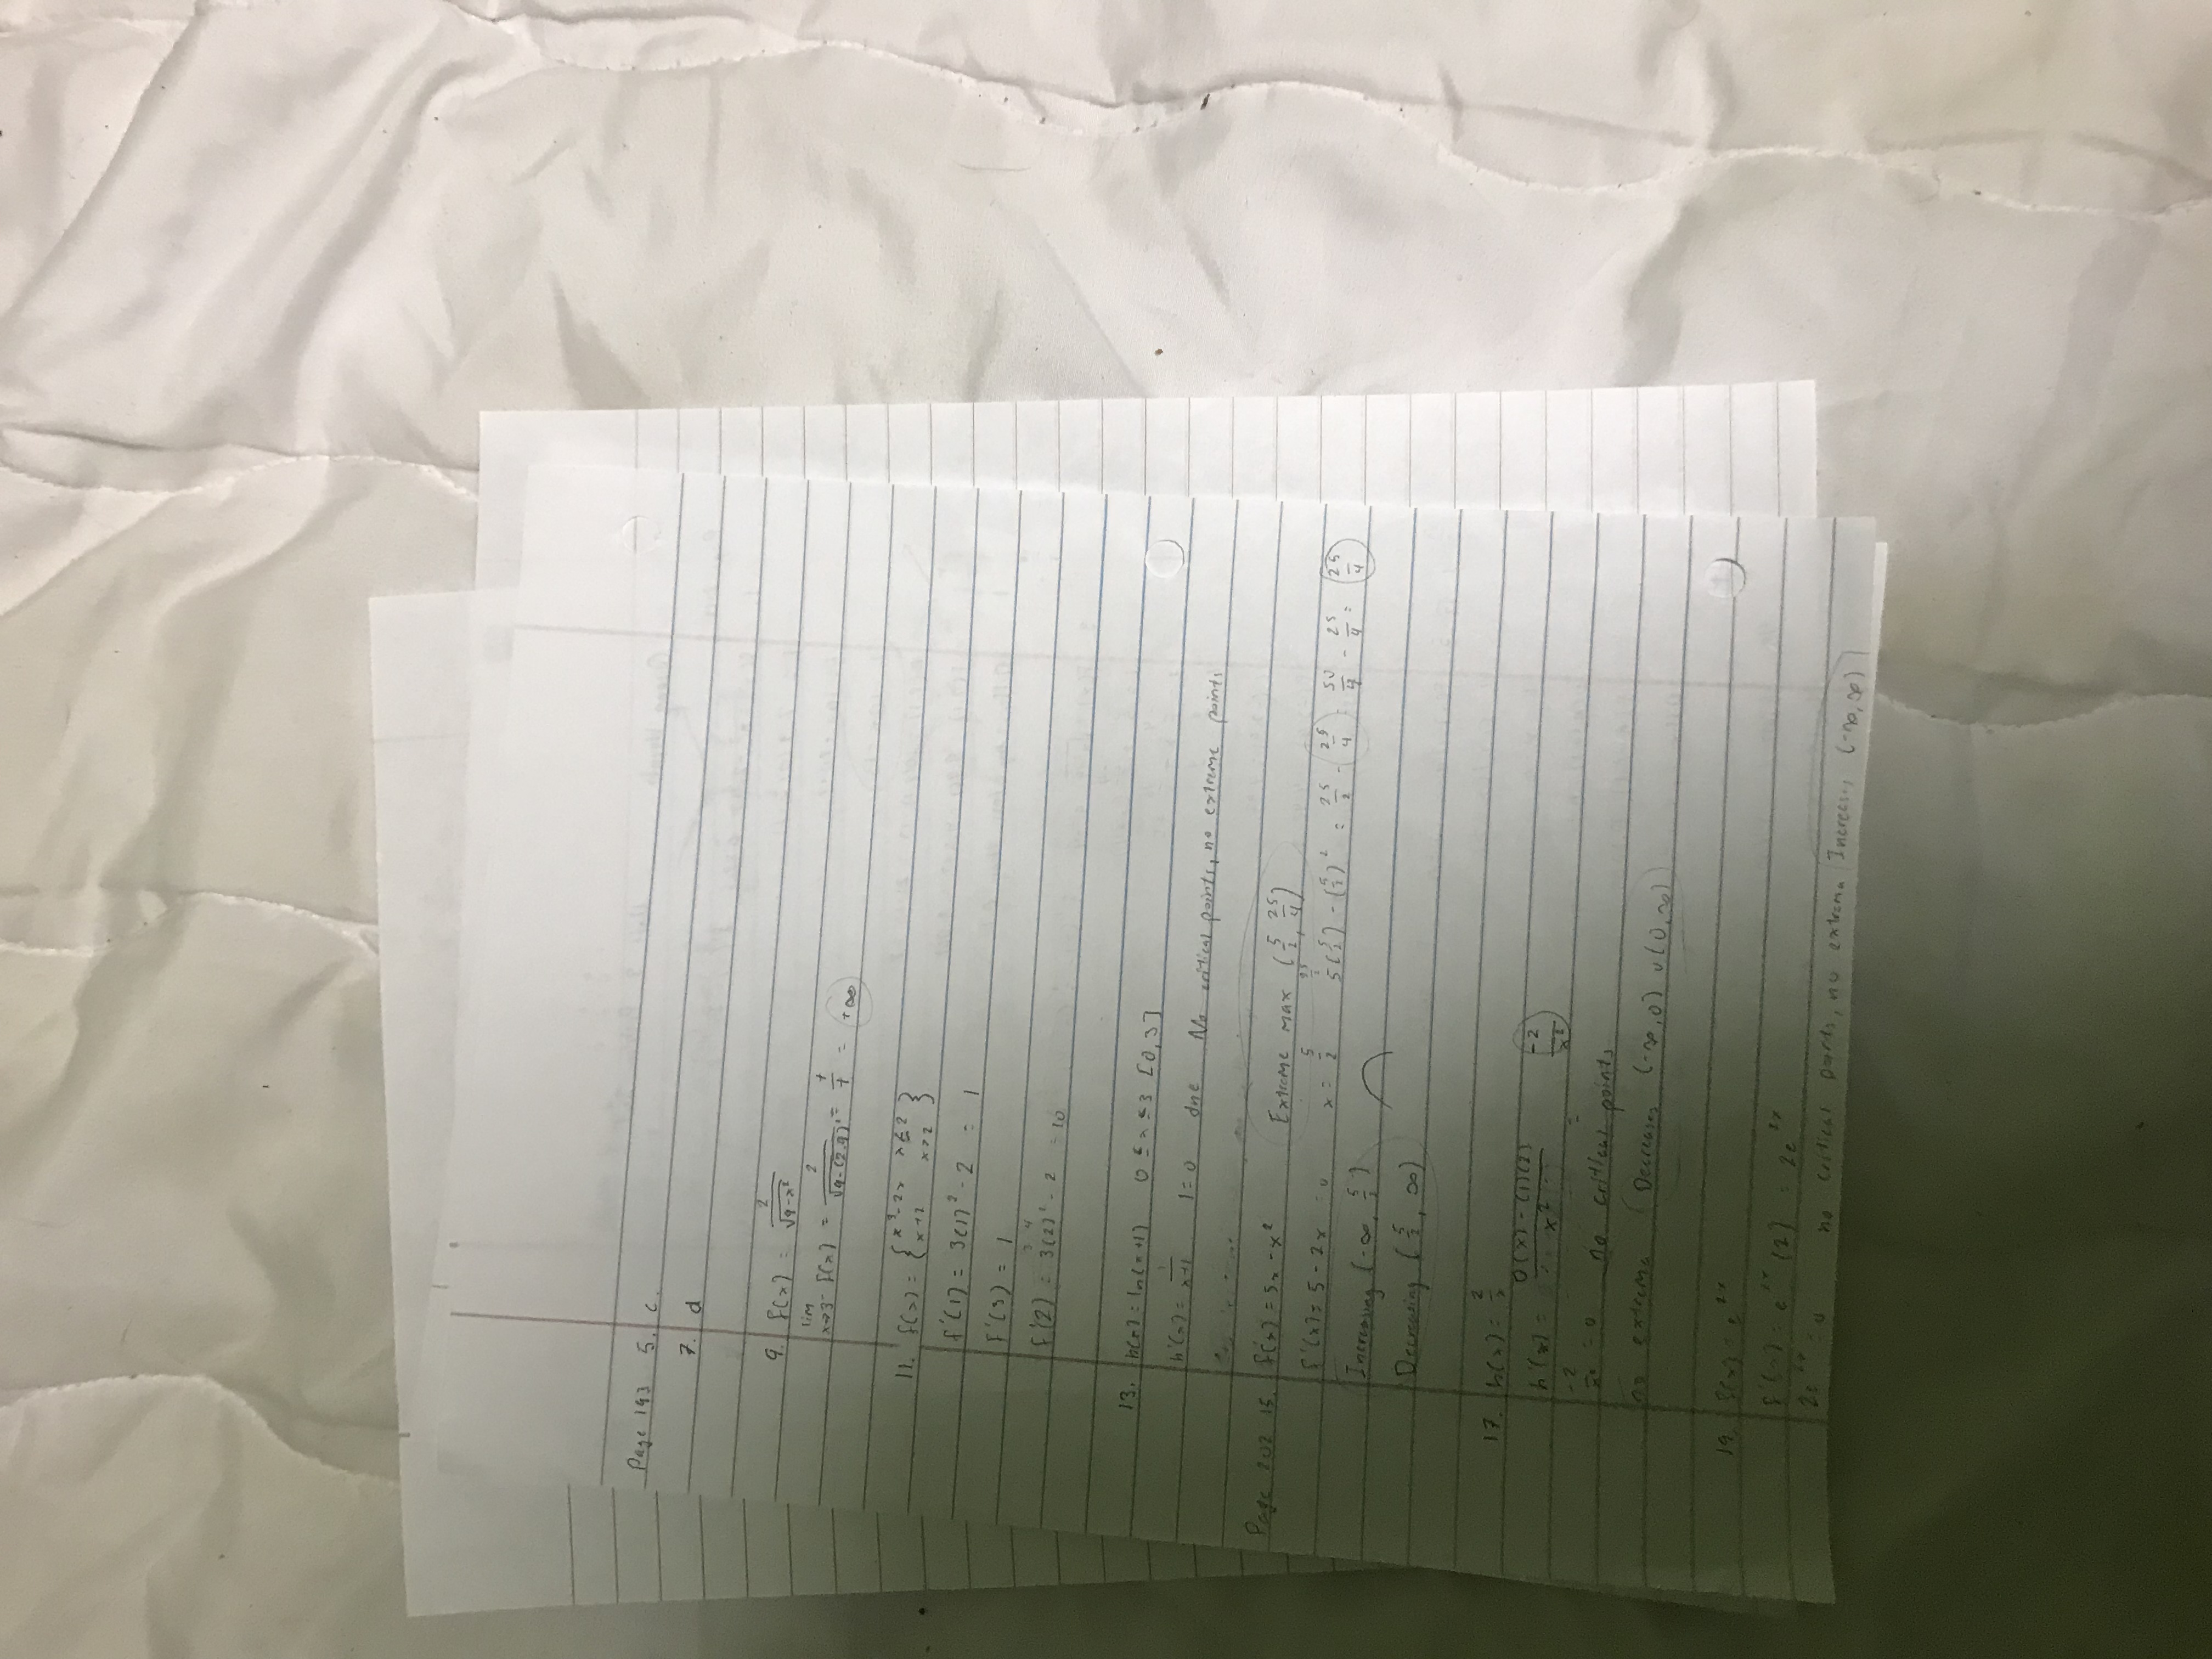 Page 193 5. c.
7. d
9. f(x) = 2/√9-x²
lim x→3⁻ f(x) = 2/√9-(2.9)² = +/+ = +∞
11. f(x) = { x³-2x x≤2
x+2 x>2 }
f'(1) = 3(1)² - 2 = 1
f'(3) = 1
f'(2) = 3(2)² - 2 = 10
13. h(x) = ln(x+1) 0 ≤ x ≤ 3 [0,3]
h'(x) = 1/x+1 1=0 dne No critical points, no extreme points
Page 202 15. f(x) = 5x - x² Extreme max (5/2, 25/4)
f'(x) = 5 - 2x = 0 x = 5/2 5(5/2) - (5/2)² = 25/2 - 25/4 = 50/4 - 25/4 = 25/4
Increasing (-∞, 5/2)
Decreasing (5/2, ∞)
17. h(x) = 2/x
h'(x) = 0(x) - (1)(2)/x² = -2/x²
-2/x² = 0 no critical points
no extrema Decreases (-∞,0) ∪ (0,∞)
19. f(x) = e²ˣ
f'(x) = e²ˣ (2) = 2e²ˣ
2e²ˣ = 0 no critical points, no extrema Increases (-∞,∞)